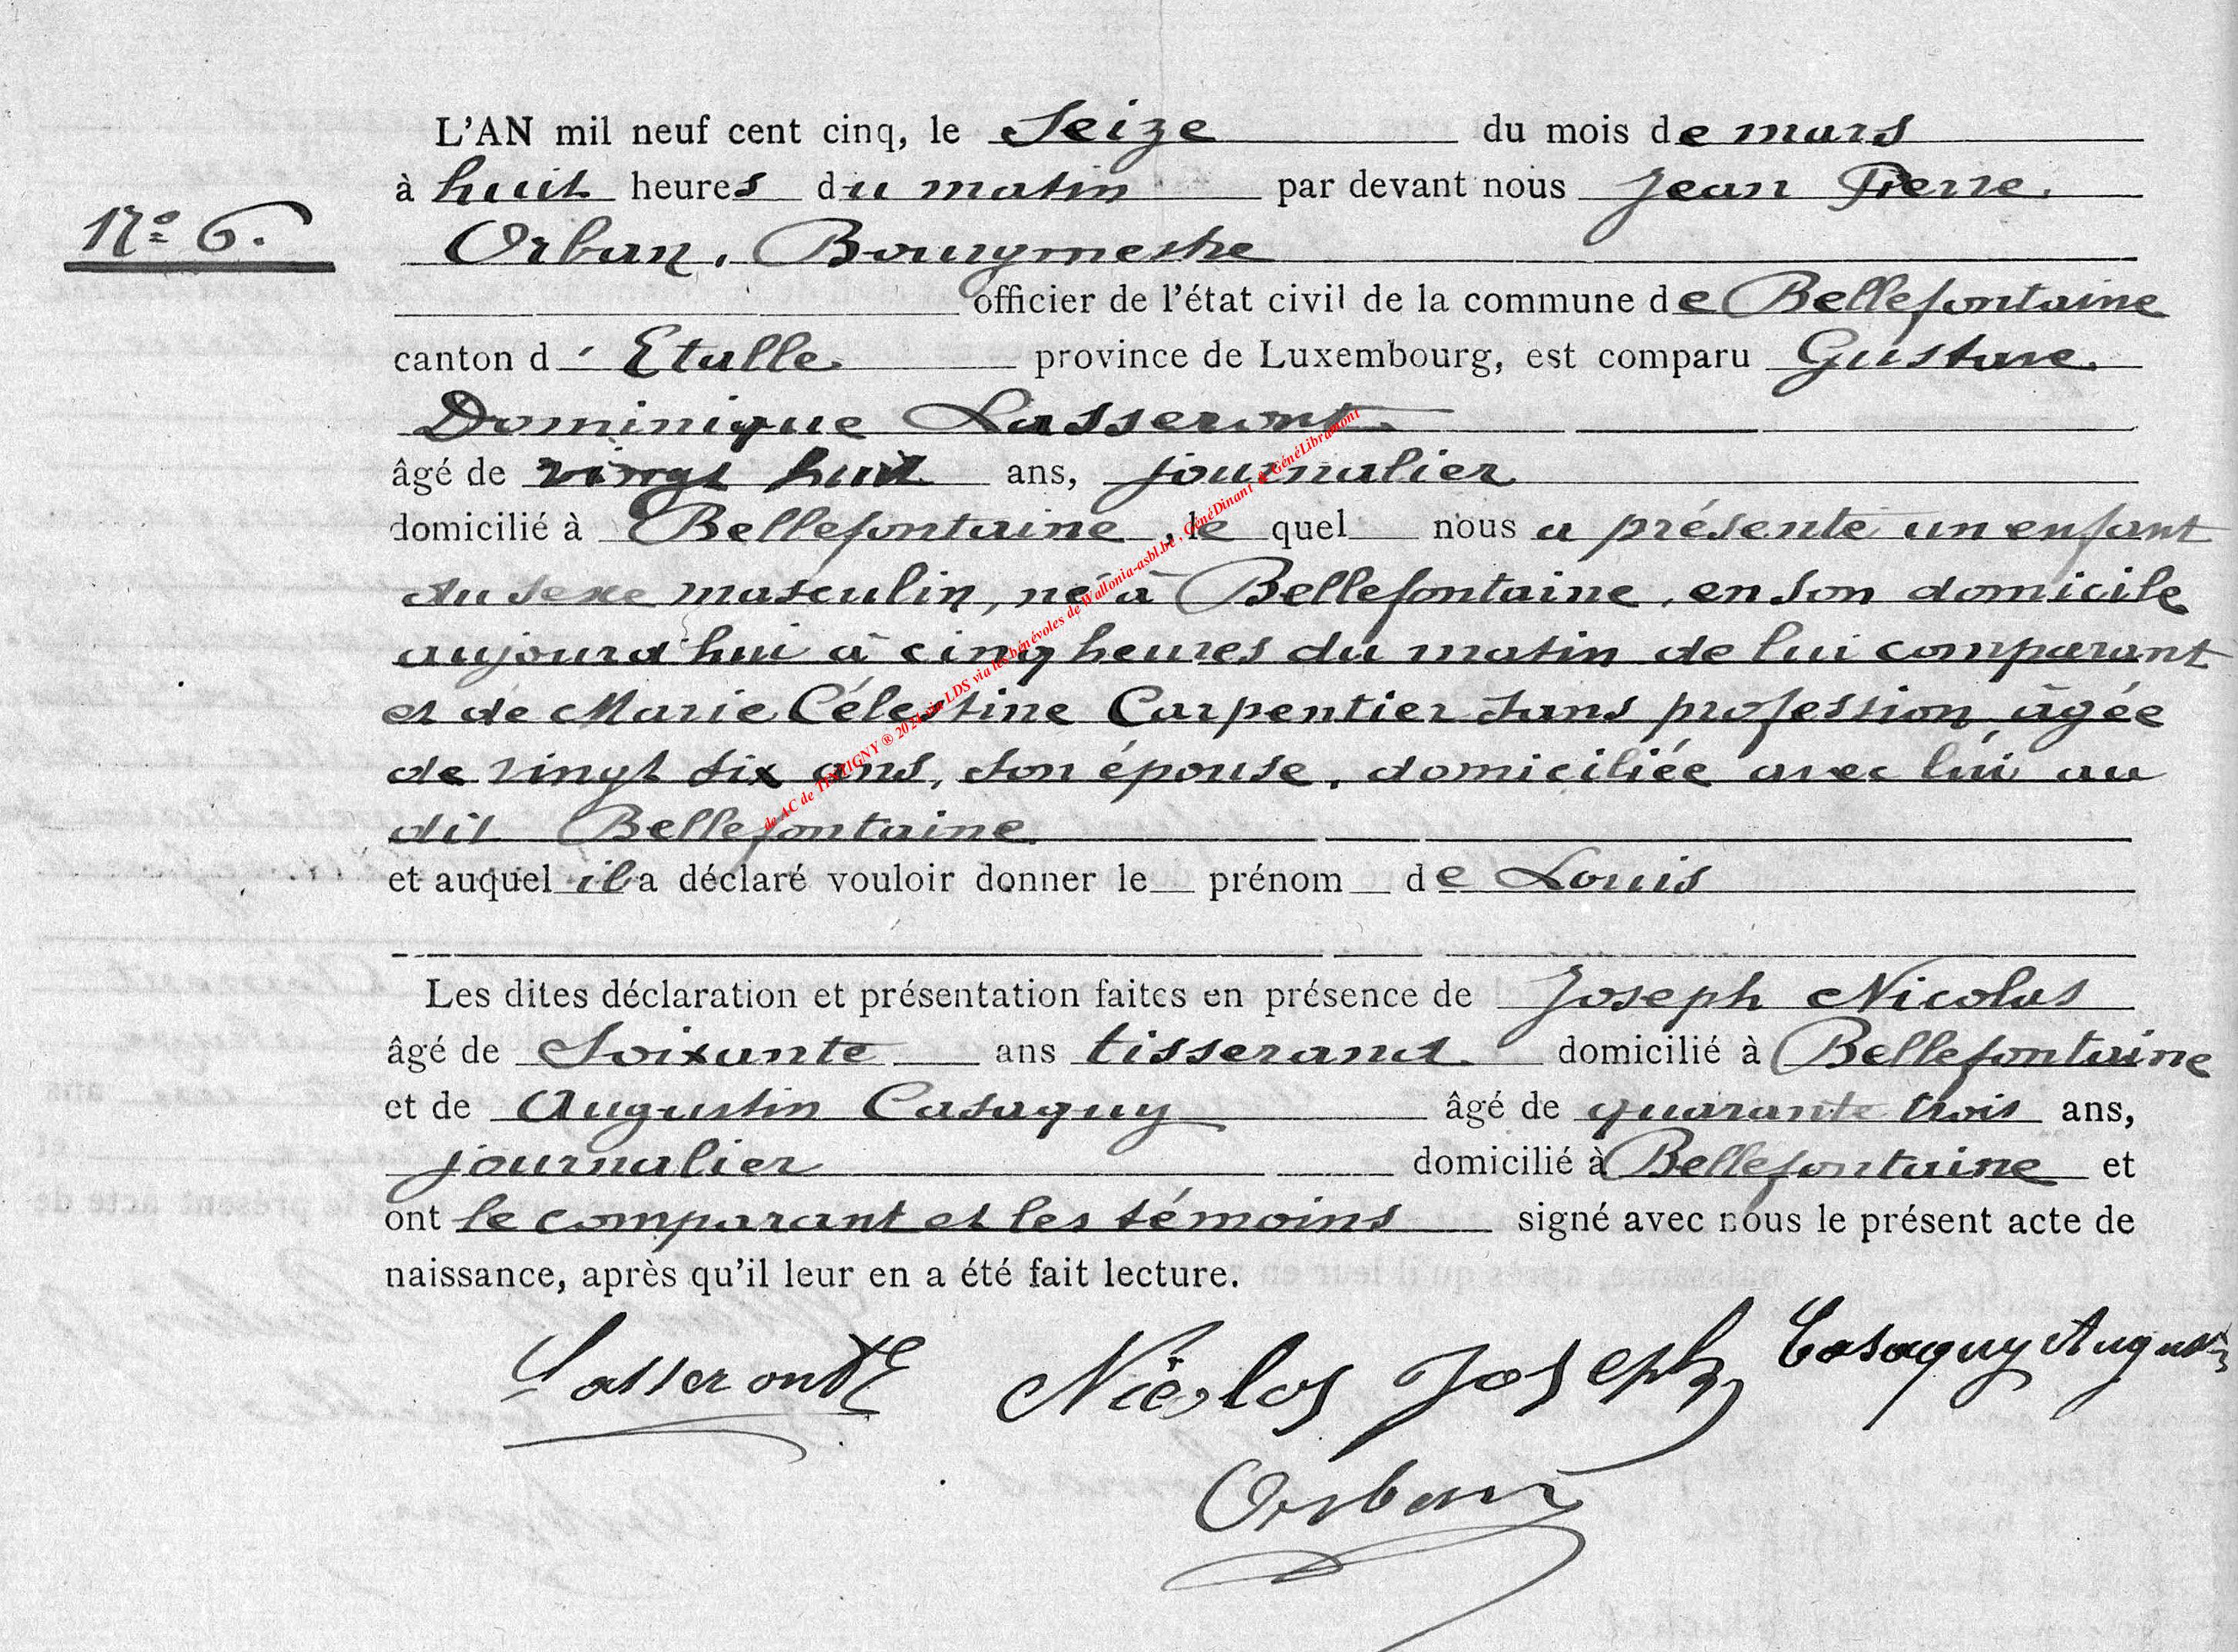 L'AN mil neuf cent cinq, le Seize du mois de mars
à huit heures du matin par devant nous Jean Pierre
N° 6.
Orban, Bourgmestre
officier de l'état civil de la commune de Bellefontaine
canton d' Etalle province de Luxembourg, est comparu Gustave
Dominique Lasseront
âgé de vingt huit ans, journalier
domicilié à Bellefontaine, le quel nous a présenté un enfant
du sexe masculin, né à Bellefontaine, en son domicile
aujourd'hui à cinq heures du matin de lui comparant
et de Marie Célestine Carpentier sans profession, âgée
de vingt six ans, son épouse, domiciliée avec lui au
dit Bellefontaine
et auquel il a déclaré vouloir donner le prénom de Louis
Les dites déclaration et présentation faites en présence de Joseph Nicolas
âgé de Soixante ans tisserand domicilié à Bellefontaine
et de Augustin Casaquy âgé de quarante trois ans,
journalier domicilié à Bellefontaine et
ont le comparant et les témoins signé avec nous le présent acte de
naissance, après qu'il leur en a été fait lecture.
Lasseront Nicolas Joseph Casaquy Augustin
Orban
de AC de TINTIGNY ® 2024 via LDS via les bénévoles de Wallonia-asbl.be , GénéDinant & GénéLibramont